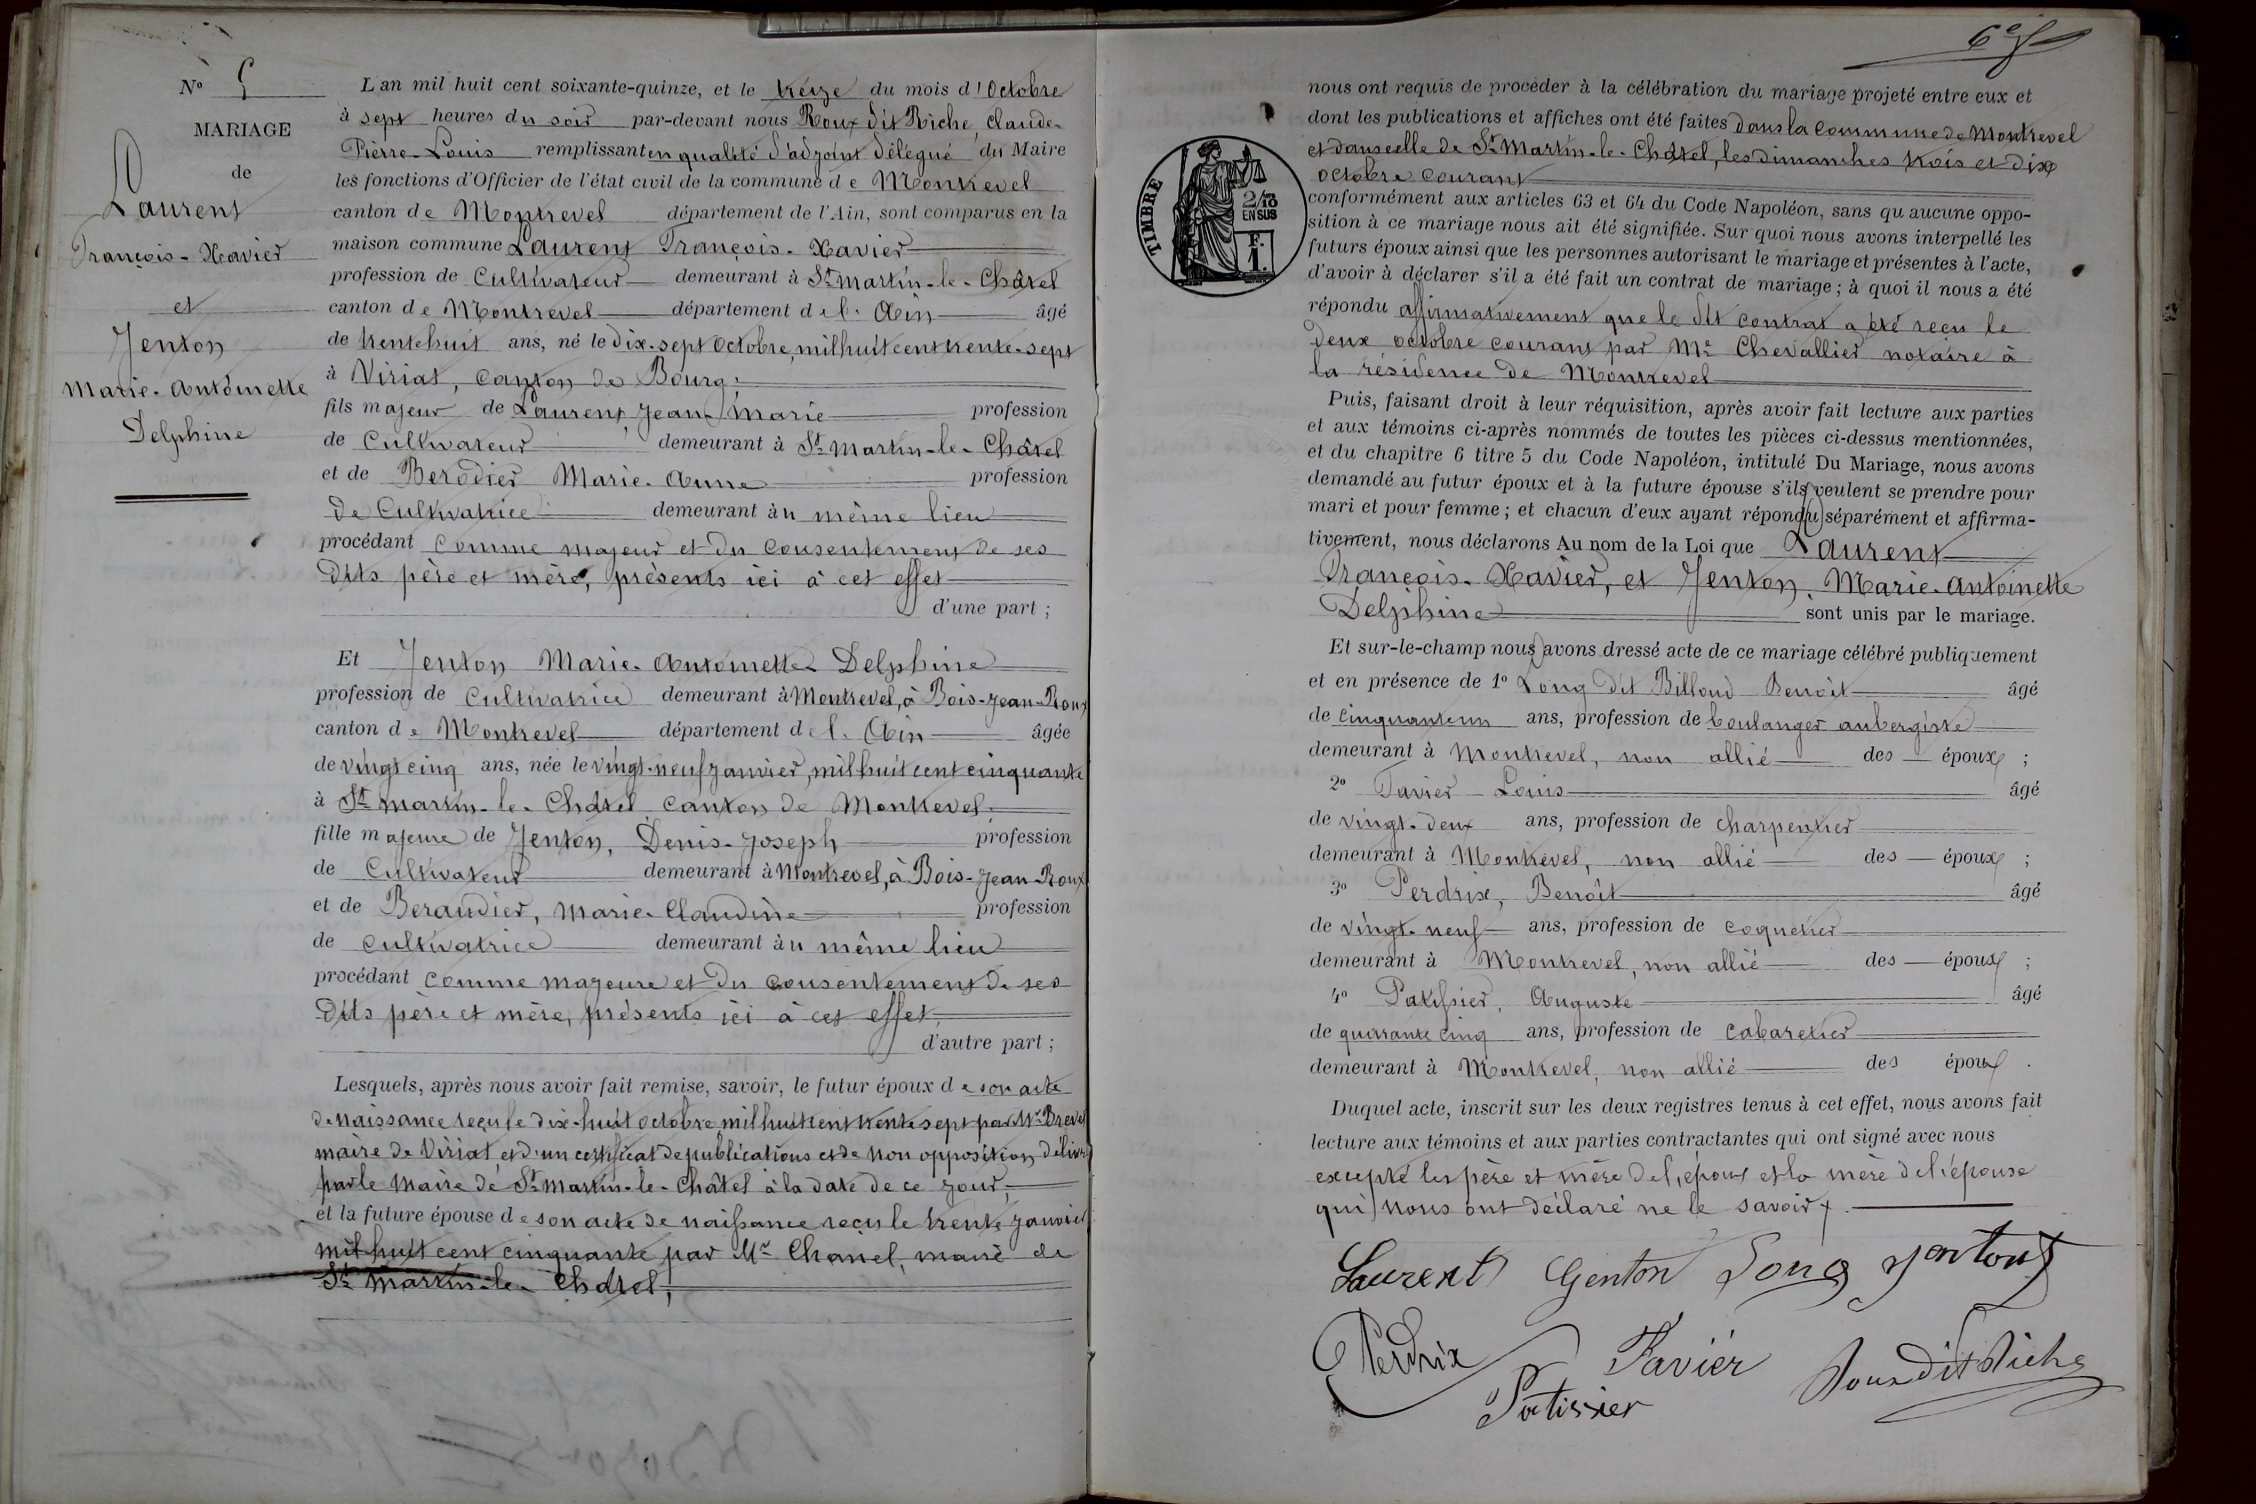 N° 5
MARIAGE
de
Laurent
François-Xavier
et
Jenton
Marie-Antoinette
Delphine
L'an mil huit cent soixante-quinze, et le treize du mois d'Octobre
à sept heures du soir par-devant nous Roux dit Riche, Claude-
Pierre-Louis remplissant en qualité d'adjoint délégué du Maire
les fonctions d'Officier de l'état civil de la commune de Montrevel
canton de Montrevel département de l'Ain, sont comparus en la
maison commune Laurent François-Xavier
profession de Cultivateur demeurant à St Martin-le-Châtel
canton de Montrevel département de l'Ain âgé
de trente huit ans, né le dix-sept Octobre, mil huit cent trente-sept
à Viriat, canton de Bourg;
fils majeur de Laurent, Jean-Marie profession
de Cultivateur demeurant à St Martin-le-Châtel
et de Berodier Marie-Anne profession
de Cultivatrice demeurant au même lieu
procédant comme majeur et du consentement de ses
dits père et mère, présents ici à cet effet
d'une part ;
Et Jenton Marie-Antoinette Delphine
profession de Cultivatrice demeurant à Montrevel, à Bois-Jean-Roux
canton de Montrevel département de l'Ain âgée
de vingt cinq ans, née le vingt-neuf janvier, mil huit cent cinquante
à St Martin-le-Châtel canton de Montrevel;
fille majeure de Jenton, Denis-Joseph profession
de Cultivateur demeurant à Montrevel, à Bois-Jean-Roux
et de Beraudier, Marie-Claudine profession
de cultivatrice demeurant au même lieu
procédant comme majeure et du consentement de ses
dits père et mère, présents ici à cet effet,
d'autre part ;
Lesquels, après nous avoir fait remise, savoir, le futur époux de son acte
de naissance reçu le dix-huit octobre mil huit cent trente sept par Mr Brevet
maire de Viriat et d'un certificat de publications et de non opposition délivré
par le Maire de St Martin-le-Châtel à la date de ce jour,
et la future épouse de son acte de naissance reçu le trente janvier
mil huit cent cinquante par Mr Chanel, maire de
St Martin-le-Châtel;
nous ont requis de procéder à la célébration du mariage projeté entre eux et
dont les publications et affiches ont été faites dans la commune de Montrevel
et dans celle de St Martin-le-Châtel, les dimanches trois et dix
octobre courant
TIMBRE
2/10
EN SUS
F.
1.
conformément aux articles 63 et 64 du Code Napoléon, sans qu'aucune oppo-
sition à ce mariage nous ait été signifiée. Sur quoi nous avons interpellé les
futurs époux ainsi que les personnes autorisant le mariage et présentes à l'acte,
d'avoir à déclarer s'il a été fait un contrat de mariage ; à quoi il nous a été
répondu affirmativement que le dit contrat a été reçu le
deux octobre courant par Me Chevallier notaire à
la résidence de Montrevel
Puis, faisant droit à leur réquisition, après avoir fait lecture aux parties
et aux témoins ci-après nommés de toutes les pièces ci-dessus mentionnées,
et du chapitre 6 titre 5 du Code Napoléon, intitulé Du Mariage, nous avons
demandé au futur époux et à la future épouse s'ils veulent se prendre pour
mari et pour femme ; et chacun d'eux ayant répondu séparément et affirma-
tivement, nous déclarons Au nom de la Loi que Laurent
François-Xavier, et Jenton, Marie-Antoinette
Delphine sont unis par le mariage.
Et sur-le-champ nous avons dressé acte de ce mariage célébré publiquement
et en présence de 1° Long dit Billoud Benoît âgé
de cinquante un ans, profession de boulanger aubergiste
demeurant à Montrevel, non allié des époux ;
2° Favier Louis âgé
de vingt-deux ans, profession de charpentier
demeurant à Montrevel, non allié des époux ;
3° Perdrix, Benoît âgé
de vingt-neuf ans, profession de coquetier
demeurant à Montrevel, non allié des époux ;
4° Patissier, Auguste âgé
de quarante cinq ans, profession de cabaretier
demeurant à Montrevel, non allié des époux .
Duquel acte, inscrit sur les deux registres tenus à cet effet, nous avons fait
lecture aux témoins et aux parties contractantes qui ont signé avec nous
excepté les père et mère de l'époux et la mère de l'épouse
qui nous ont déclaré ne le savoir.
Laurent Genton Long Jenton
Perdrix Favier Roux dit Riche
Patissier